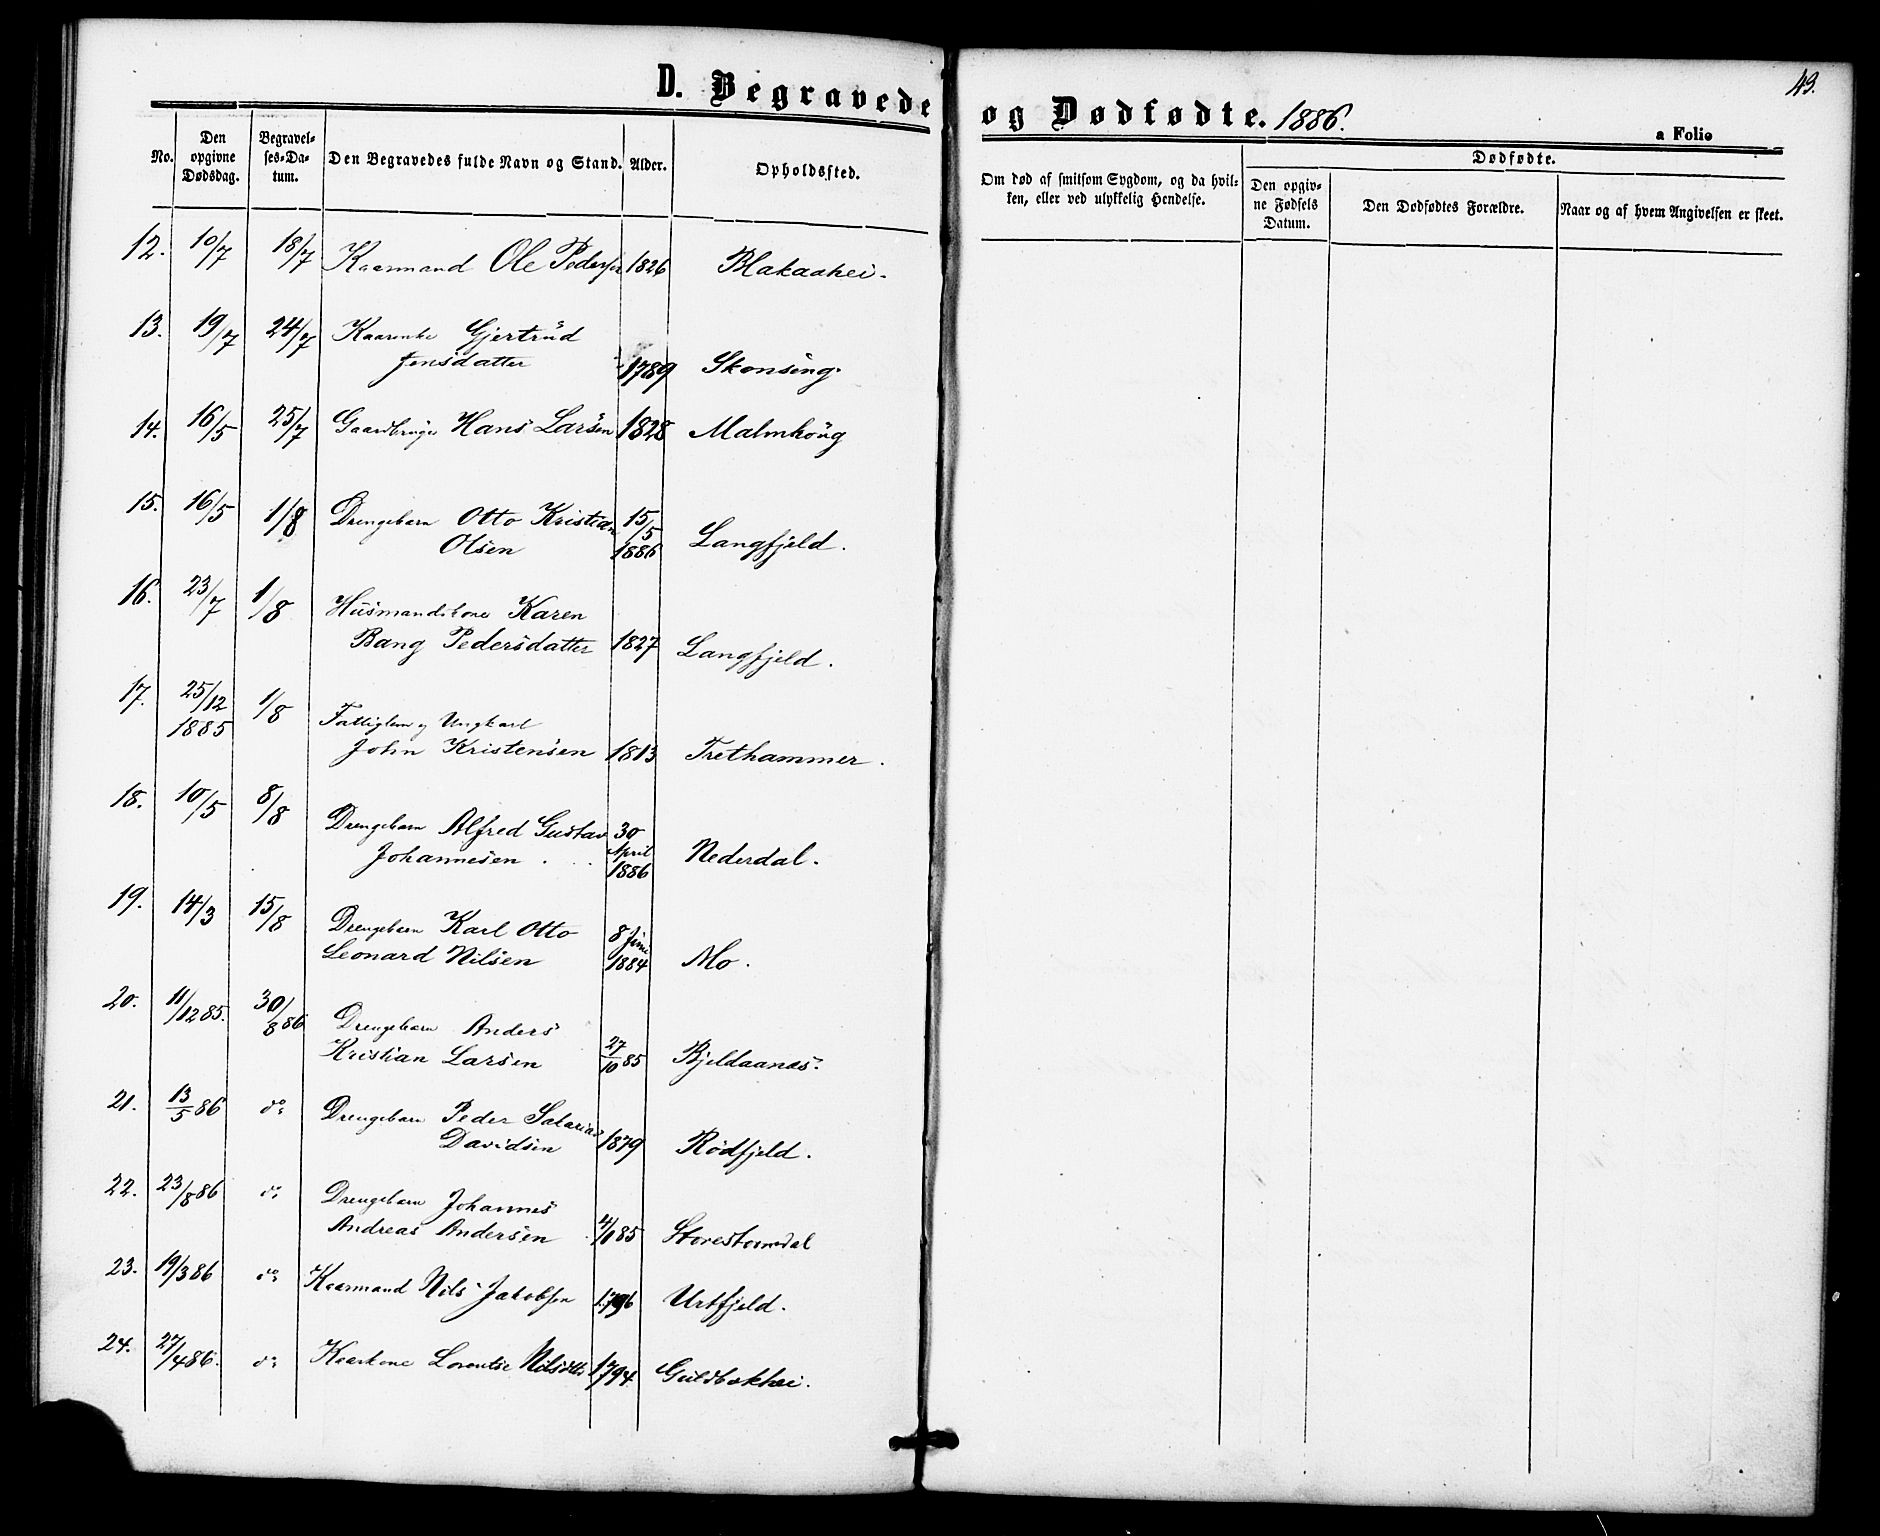 D. Begravede og Dødfødte. 1886.
49.
a Folio
No.
Den opgivne Dødsdag.
Begravelses-Datum.
Den Begravedes fulde Navn og Stand.
Alder.
Opholdssted.
Om død af smitsom Sygdom, og da hvilken, eller ved ulykkelig Hendelse.
Dødfødte.
Den opgivne Fødsels Datum.
Den Dødfødtes Forældre.
Naar og af hvem Angivelsen er skeet.
12. 10/7 18/7 Kaarmand Ole Pedersen 1826 Blakaahei.
13. 19/7 24/7 Kaarenke Gjertrud
Jensdatter 1789 Skonseng.
14. 16/5 25/7 Gaardbruger Hans Larsen 1828 Malmhoug
15. 16/5 1/8 Drengebarn Otto Kristian 15/5
Olsen 1886 Langfjeld.
16. 23/7 1/8 Husmandskone Karen
Bang Pedersdatter 1827 Langfjeld.
17. 25/12 1/8 Fattiglem og Ungkarl
1885 John Kristensen 1813 Trethammer.
18. 10/5 8/8 Drengebarn Alfred Gustav 30
Johannesen. April 1886 Nederdal.
19. 14/3 15/8 Drengebarn Karl Otto 8 Juni
Leonard Nilsen 1884 Mo.
20. 11/12 85. 30/8 86 Drengebarn Anders
Kristian Larsen 27/10 85 Bjeldaanæs.
21. 13/5 86 do Drengebarn Peder
Davidsen 1879 Rödfjeld.
22. 23/8 86 do Drengebarn Johannes
Andreas Andersen 85 Storestormdal
23. 19/3 86 do Kaarmand Nils Jakobsen 1796 Urtfjeld.
24. 27/4 86. do Kaarkone Lorentse Nilsdtr 1794 Guldbakhei.